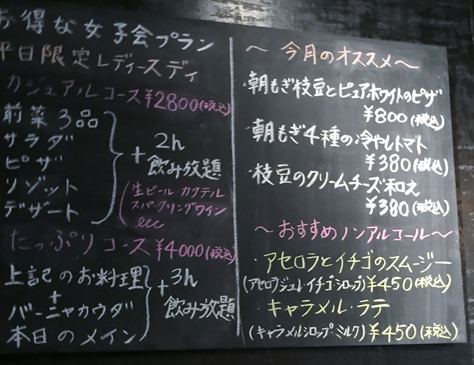 お得な女子会プラン
平日限定レディースデイ
カジュアルコース¥2800(税込)
前菜3品
サラダ
ピザ
リゾット
デザート
+ 2h
飲み放題
生ビール・カクテル
スパークリングワイン
etc
たっぷりコース¥4000(税込)
上記のお料理
+
バーニャカウダ
本日のメイン
+ 3h
飲み放題
～今月のオススメ～
・朝もぎ枝豆とピュアホワイトのピザ
¥800(税込)
・朝もぎ4種の冷やしトマト
¥380(税込)
・枝豆のクリームチーズ和え
¥380(税込)
～おすすめノンアルコール～
・アセロラとイチゴのスムージー
(アセロラジュレ・イチゴシロップ)¥450(税込)
・キャラメル・ラテ
(キャラメルシロップ・ミルク)¥450(税込)